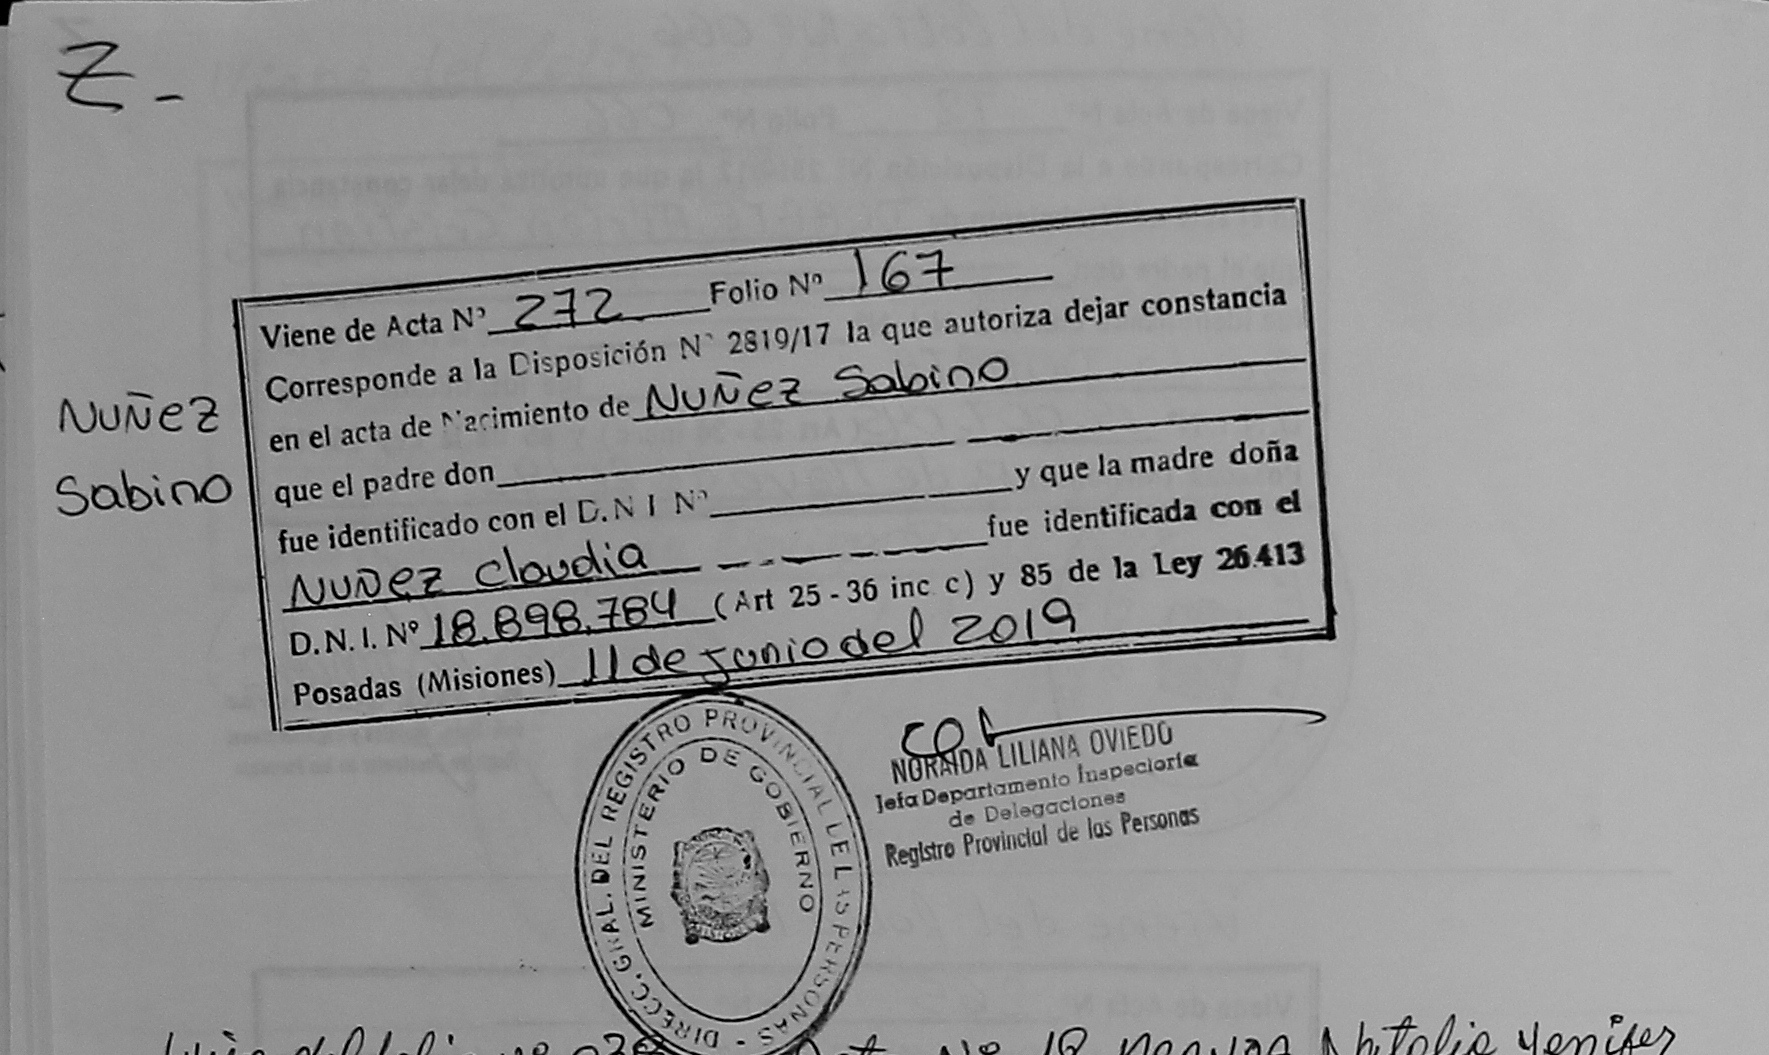 Z-
Viene de Acta Nº 272 Folio Nº 167
Corresponde a la Disposición Nº 2819/17 la que autoriza dejar constancia
en el acta de Nacimiento de NUÑEZ Sabino
que el padre don
fue identificado con el D.N I Nº y que la madre doña
NUÑEZ Claudia fue identificada con el
D.N.I. Nº 18.898.784 (Art 25 - 36 inc c) y 85 de la Ley 26.413
Posadas (Misiones) 11 de junio del 2019
NUÑEZ
Sabino
DIRECC. GRAL. DEL REGISTRO PROVINCIAL DE LAS PERSONAS -
MINISTERIO DE GOBIERNO
NORAIDA LILIANA OVIEDO
Jefa Departamento Inspectoría
de Delegaciones
Registro Provincial de las Personas
Natalia Yenifer